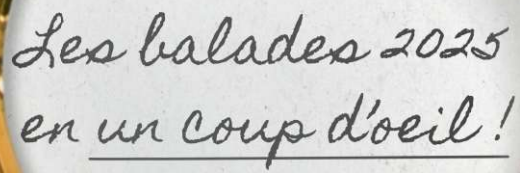 Les balades 2025
en un coup d'oeil !